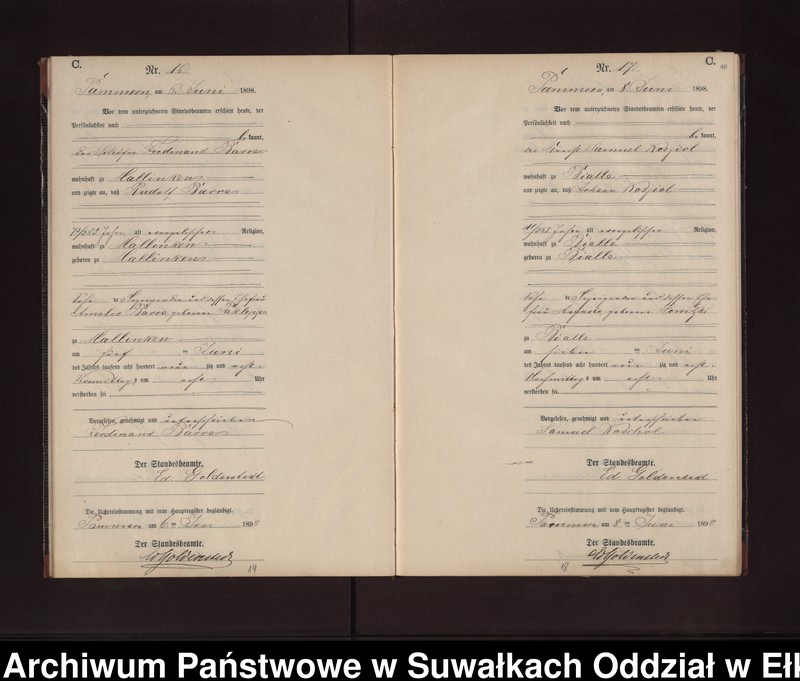 C.
Nr. 16
am 6 Juni 1898.
Vor dem unterzeichneten Standesbeamten erschien heute, der
Persönlichkeit nach
kannt,
Ferdinand Barra
wohnhaft zu Mallinken
und zeigte an, daß Rudolf Barra
Jahre alt evangelischer Religion,
wohnhaft zu Mallinken
geboren zu Mallinken
Amalie Barra geborene
zu Mallinken
am fünf ten Juni
des Jahres tausend acht hundert neun zig und acht
Vormittags um acht Uhr
verstorben sei
Vorgelesen, genehmigt und unterschrieben
Ferdinand Barra
Der Standesbeamte.
Ed Goldenstedt
Die Uebereinstimmung mit dem Hauptregister beglaubigt.
am 6 ten Juni 1898
Der Standesbeamte.
Ed Goldenstedt
14
C.
Nr. 17
am 8 Juni 1898.
Vor dem unterzeichneten Standesbeamten erschien heute, der
Persönlichkeit nach
kannt,
Samuel Kodziol
wohnhaft zu Bialla
und zeigte an, daß Johann Kodziol
Jahre alt evangelischer Religion,
wohnhaft zu Bialla
geboren zu Bialla
zu Bialla
am sieben ten Juni
des Jahres tausend acht hundert neun zig und acht
Nachmittags um acht Uhr
verstorben sei
Vorgelesen, genehmigt und unterschrieben
Samuel
Der Standesbeamte.
Ed Goldenstedt
Die Uebereinstimmung mit dem Hauptregister beglaubigt.
am 8 ten Juni 1898
Der Standesbeamte.
Ed Goldenstedt
Archiwum Państwowe w Suwałkach Oddział w Ełk